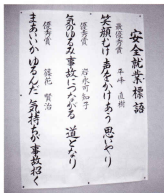 安全就業標語
最優秀賞 平峰 直樹
笑顔むけ 声をかけあう 思いやり
優秀賞 岩永 可知子
気のゆるみ 事故につながる 道となり
優秀賞 篠花 賢治
まあいいか ゆるんだ 気持ちが 事故招く